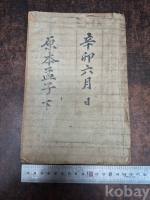 辛卯六月 日
原本孟子 七
kobay